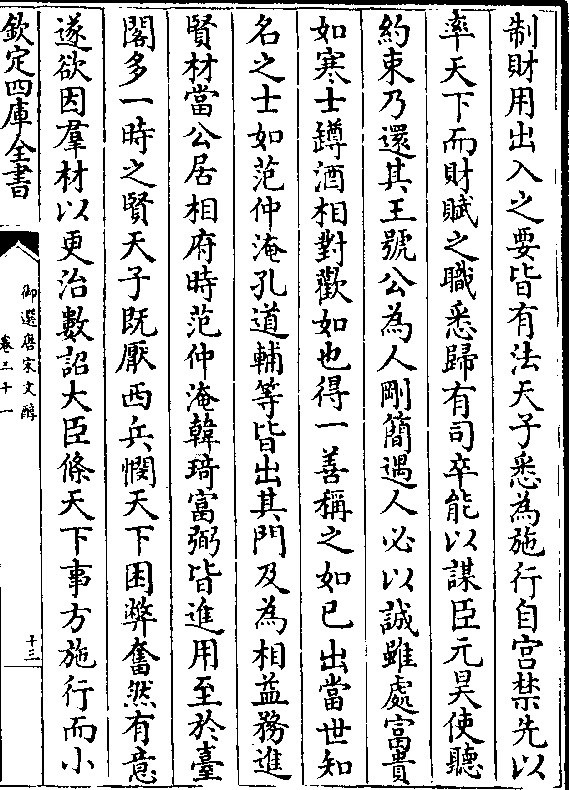 制財用出入之要皆有法天子悉為施行自宫禁先以
率天下而財賦之職悉歸有司卒能以謀臣元昊使聽
約束乃還其王號公為人剛簡遇人必以誠雖處富貴
如寒士罇酒相對歡如也得一善稱之如已出當世知
名之士如范仲淹孔道輔等皆出其門及為相益務進
賢材當公居相府時范仲淹韓琦富弼皆進用至於臺
閣多一時之賢天子既厭西兵憫天下困弊奮然有意
遂欲因羣材以更治數詔大臣條天下事方施行而小
欽定四庫全書
御選唐宋文醇
卷二十一
十三